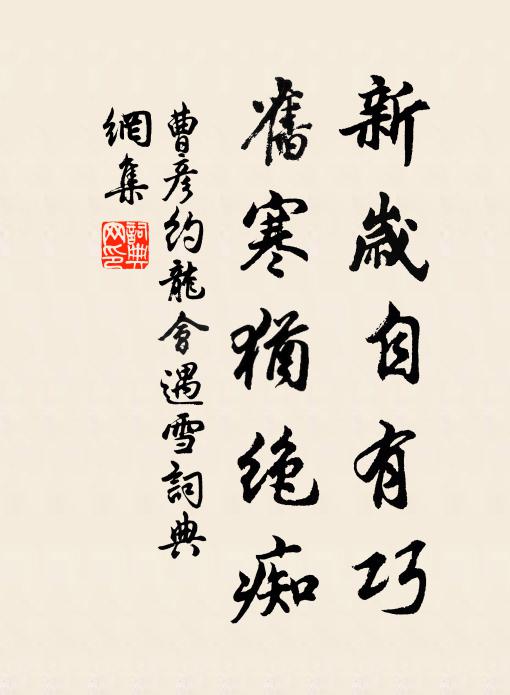 新歲自有巧
舊寒猶絶痴
曹彥約龍會遇雪詞典
網集
詞典網印